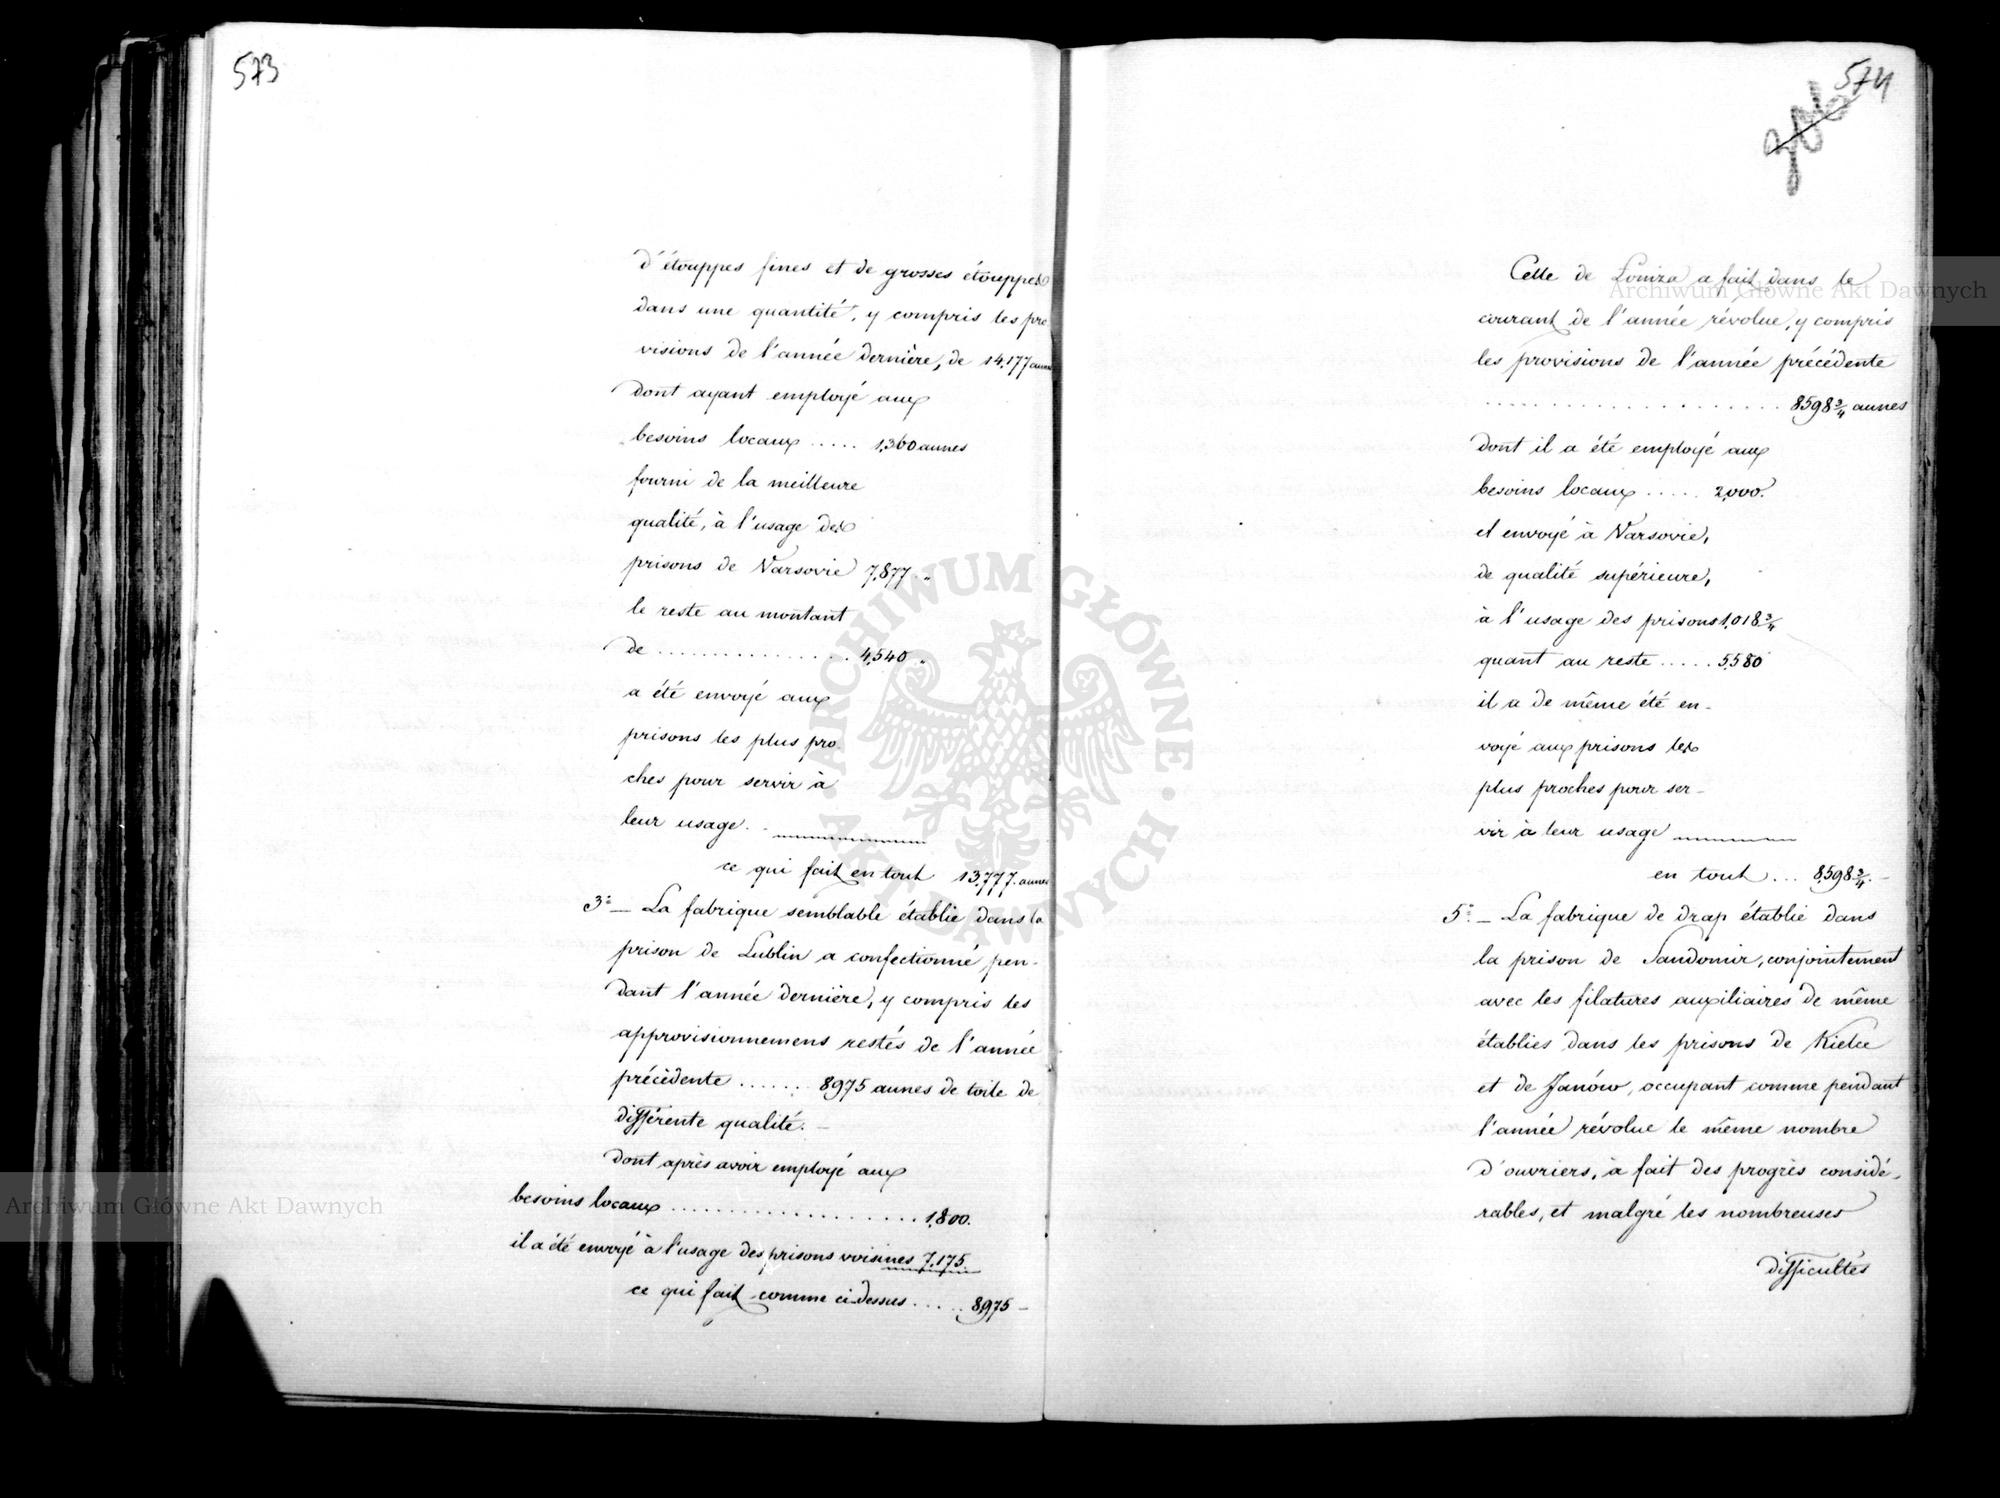 573
d'étouppes fines et de grosses étouppes
dans une quantité, y compris les pro
visions de l'année dernière, de 14,177 aunes
dont ayant employé aux
besoins locaux ..... 1,360 aunes
fourni de la meilleure
qualité, à l'usage des
prisons de Varsovie 7,877 "
le reste au montant
de ................ 4,540 "
a été envoyé aux
prisons les plus pro-
ches pour servir à
leur usage.
ce qui fait en tout 13,777. aunes
3° — La fabrique semblable établie dans la
prison de Lublin a confectionné pen-
dant l'année dernière, y compris les
approvisionnemens restés de l'année
précédente ....... 8975 aunes de toile de
différente qualité. —
dont après avoir employé aux
besoins locaux .................. 1,800.
il a été envoyé à l'usage des prisons voisines 7,175
ce qui fait comme ci-dessus ..... 8,975 —
574
Celle de Łomza a fait dans le
courant de l'année révolue, y compris
les provisions de l'année précédente
..................... 8598 3/4 aunes
dont il a été employé aux
besoins locaux ..... 2,000.
et envoyé à Varsovie,
de qualité supérieure,
à l'usage des prisons 1,018 3/4
quant au reste ..... 5,580
il a de même été en-
voyé aux prisons les
plus proches pour ser-
vir à leur usage
en tout ... 8,598 3/4. —
5° — La fabrique de drap établie dans
la prison de Sandomir, conjointement
avec les filatures auxiliaires de même
établies dans les prisons de Kielce
et de Janów, occupant comme pendant
l'année révolue le même nombre
d'ouvriers, à fait des progrès considé-
rables, et malgré les nombreuses
difficultés
Archiwum Główne Akt Dawnych
Archiwum Główne Akt Dawnych
ARCHIWUM GŁÓWNE · AKT DAWNYCH ·